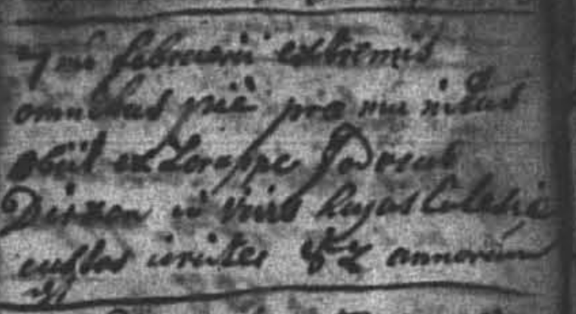 7 mi februarii extremis
omnibus piè præ mu nitus
obiit ex Lorappe Jodocus
Dirxen in vivis hujus Ecclesiæ
custos circiter 82 annorum